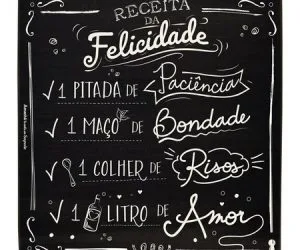 RECEITA
DA
Felicidade
1 PITADA DE Paciência
1 MAÇO DE Bondade
1 COLHER DE Risos
1 LITRO DE Amor